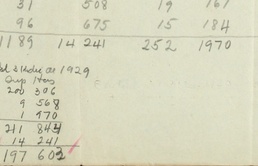 31 508 19 167
96 675 15 184
1189 14 241 252 1970
1929
200 306
9 568
1 970
211 844
14 241
197 602